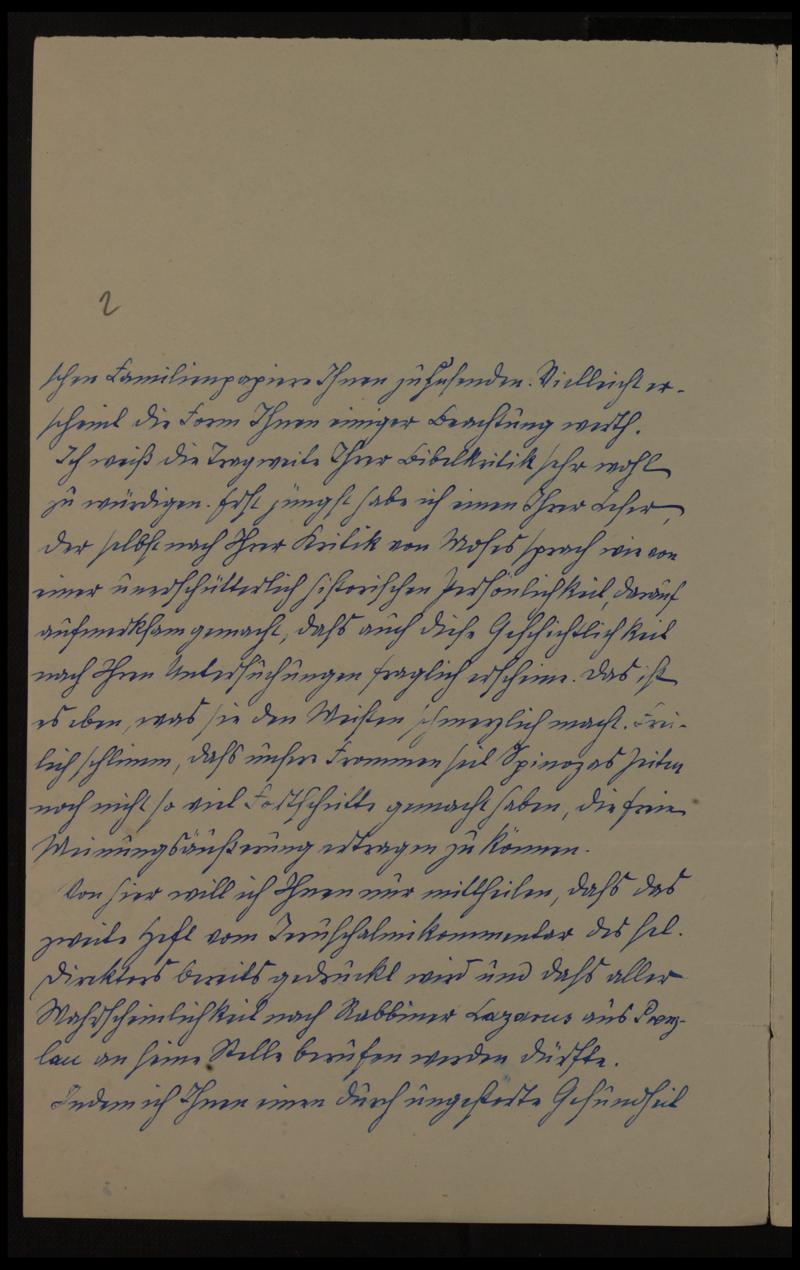 2
schen Familienpapiere Ihnen zuzusenden. Vielleicht er-
scheint die Form Ihnen einiger Beachtung werth.
Ich weiß die Tragweite Ihrer Bibelkritik sehr wohl
zu würdigen. Erst jüngst habe ich einen Ihrer Leser,
der selbst nach Ihrer Kritik von Moses sprach wie von
einer unerschütterlich historischen Persönlichkeit, darauf
aufmerksam gemacht, dass auch diese Geschichtlichkeit
nach Ihren Untersuchungen fraglich erscheine. Das ist
es eben, was sie den Meisten schmerzlich macht. Frei-
lich schlimm, dass unsere Frommen seit Spinozas Zeiten
noch nicht so viel Fortschritte gemacht haben, die freie
Meinungsäußerung ertragen zu können.
Von hier will ich Ihnen nur mittheilen, dass das
zweite Heft vom Jeruschalmikommentar des sel.
Direktors bereits gedruckt wird und dass aller
Wahrscheinlichkeit nach Rabbiner Lazarus aus Prenz-
lau an seine Stelle berufen werden dürfte.
Indem ich Ihnen einen durch ungestörte Gesundheit